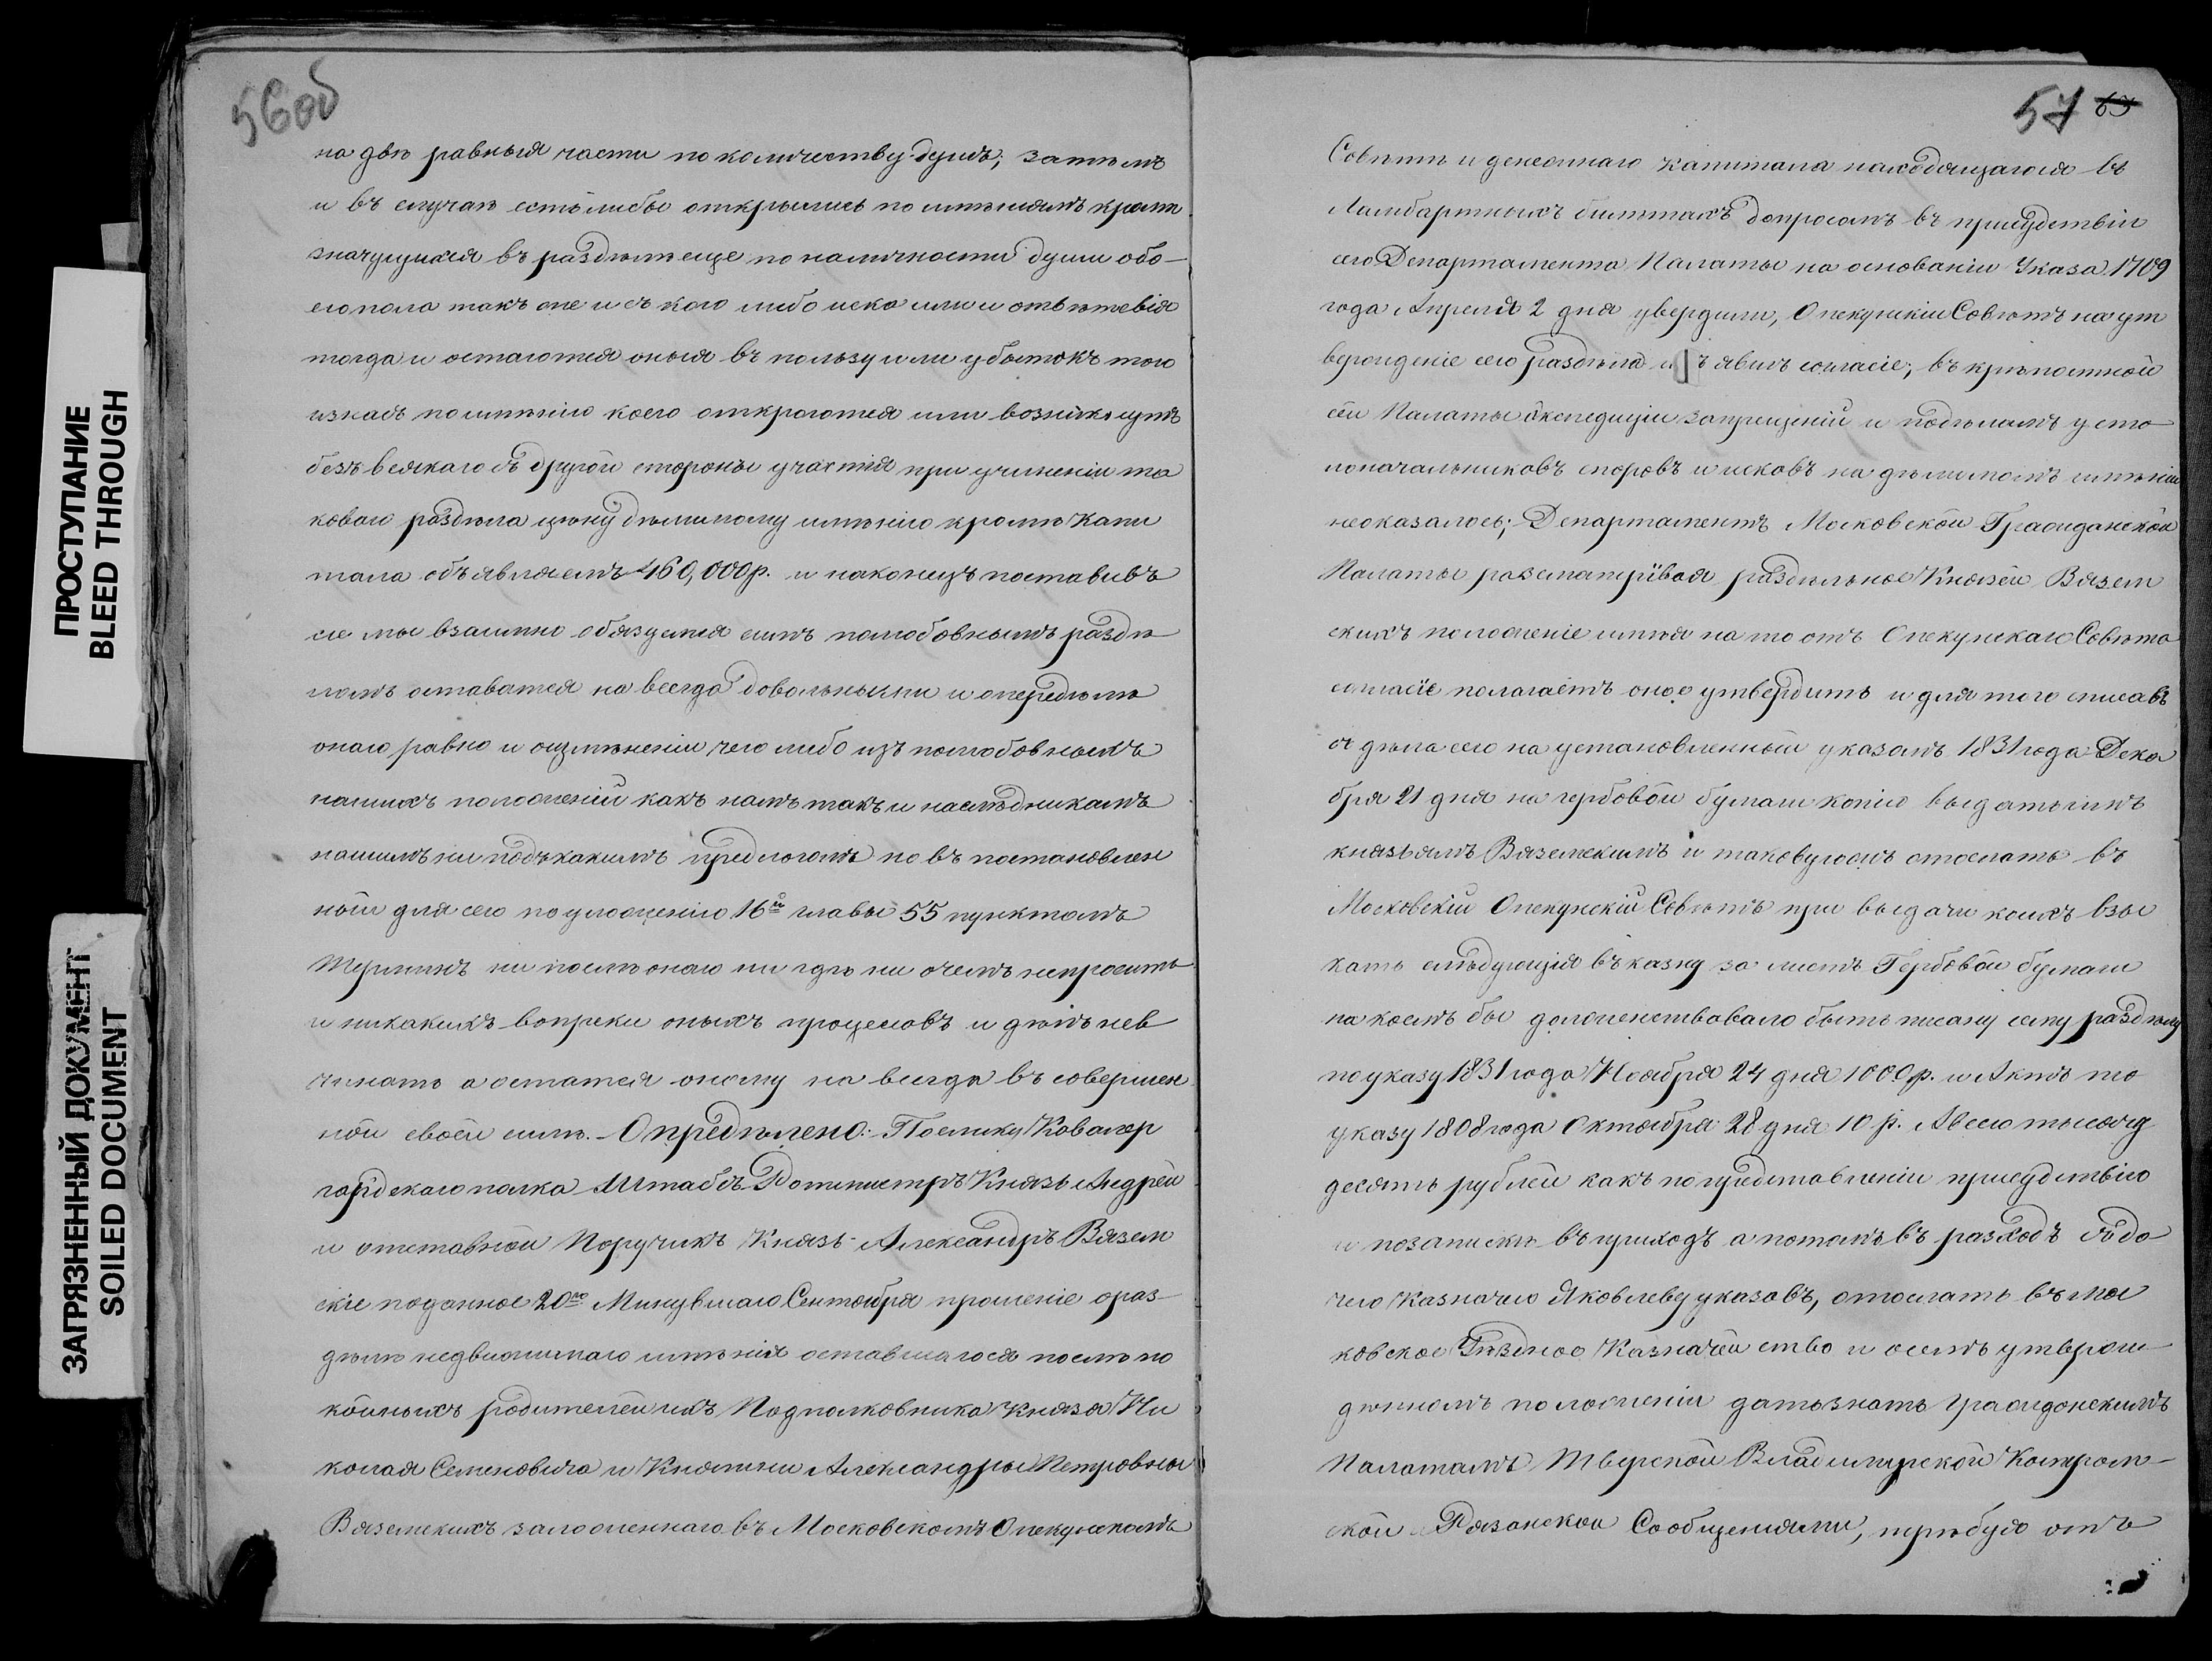 56об
на двѣ равныя части по количеству душъ; затѣмъ
и въ случаѣ естьлибы открылись по имѣніямъ кромѣ
значущихся въ раздѣлѣ еще по наличности души обо-
его пола такъ же и съ кого либо иска или и отвѣтствія
тогда и остаются оныя въ пользу или убытокъ того
изнасъ поимѣнію коего откроются или возникнутъ
безъ всякаго съ другой стороны участія при учиненіи та
коваго раздѣла цѣну дѣлимому имѣнію кромѣ капи
тала объявляемъ 460,000р. и наконецъ поставивъ
сіе мы взаимно обязуемся симъ полюбовнымъ раздѣ
ломъ оставатся на всегда довольными и опередѣлѣ
онаго равно и оизмѣненіи чего либо изъ полюбовныхъ
нашихъ положеній какъ намъ такъ и наслѣдникамъ
нашимъ ни подъ какимъ предлогомъ но въ постановлен
ной для сего по уложенію 16й главы 55 пунктомъ
терминъ ни послѣ онаго ни гдѣ ни очемъ непросить
и никакихъ вопреки оныхъ процесовъ и дѣлъ нев
чинать а остатся оному на всегда въ совершен
ной своей силѣ. Опредѣлено: Поелику Кавалер
гардскаго полка Штабсъ Ротмистръ Князь Андрей
и отставной Поручикъ Князь Александръ Вязем
скіе поданное 20го Минувшаго Сентября прошеніе ораз-
дѣлѣ недвижимаго имѣнія оставшагося послѣ по
койныхъ родителей ихъ Подполковника Князя Ни
колая Семеновича и Княгини Александры Петровны
Вяземскихъ заложеннаго въ Московскомъ Опекунскомъ
57 63
Совѣтѣ и денежнаго капитала находящагося въ
Ламбартныхъ билетахъ допросомъ въ присудствіи
сего Департамента Палаты на основаніи Указа 1709
года Апреля 2 дня утвердили, Опекунскій Совѣтъ на ут
вержденіе сего раздѣла изъявилъ согласіе; въ крѣпостной
сей Палаты Экспедиціи запрещеній и поделамъ у сто
лоначальниковъ споровъ и исковъ на дѣлимомъ имѣніи
неоказалось; Департаментъ Московской Гражданской
Палаты разсматривая раздѣльное Князей Вязем
скихъ положеніе имѣя на то отъ Опекунскаго Совѣта
согласіе полагаетъ оное утвердить и для того списавъ
съ дѣла сего на установленной указомъ 1831 года Дека
бря 21 дня на гербовой бумаги копію выдать имъ
князьямъ Вяземскимъ и таковуюжъ отослать въ
Московскій Опекунскій Совѣтъ при выдачи коихъ взы
кать слѣдующія въ казну за листъ Гербовой бумаги
на коемъ бы долженствовало быть писану сему раздѣлу
по указу 1831 года Ноября 24 дня 1000р. и Актъ по
указу 1808 года Октября 28 дня 10 р. А всего тысячу
десять рублей какъ по представленіи присудствію
и позаписки въ приходъ а потомъ въ разходъ
чего Казначею Яковлеву указавъ, отослать въ Мос
ковское Уѣздное Казначейство и осемъ утверж-
деномъ положеніи дать знать Гражданскимъ
Палатамъ Тверской Владимирской Костром-
ской Рязанской Сообщеніями, требуя отъ
ПРОСТУПАНИЕ
BLEED THROUGH
ЗАГРЯЗНЕННЫЙ ДОКУМЕНТ
SOILED DOCUMENT